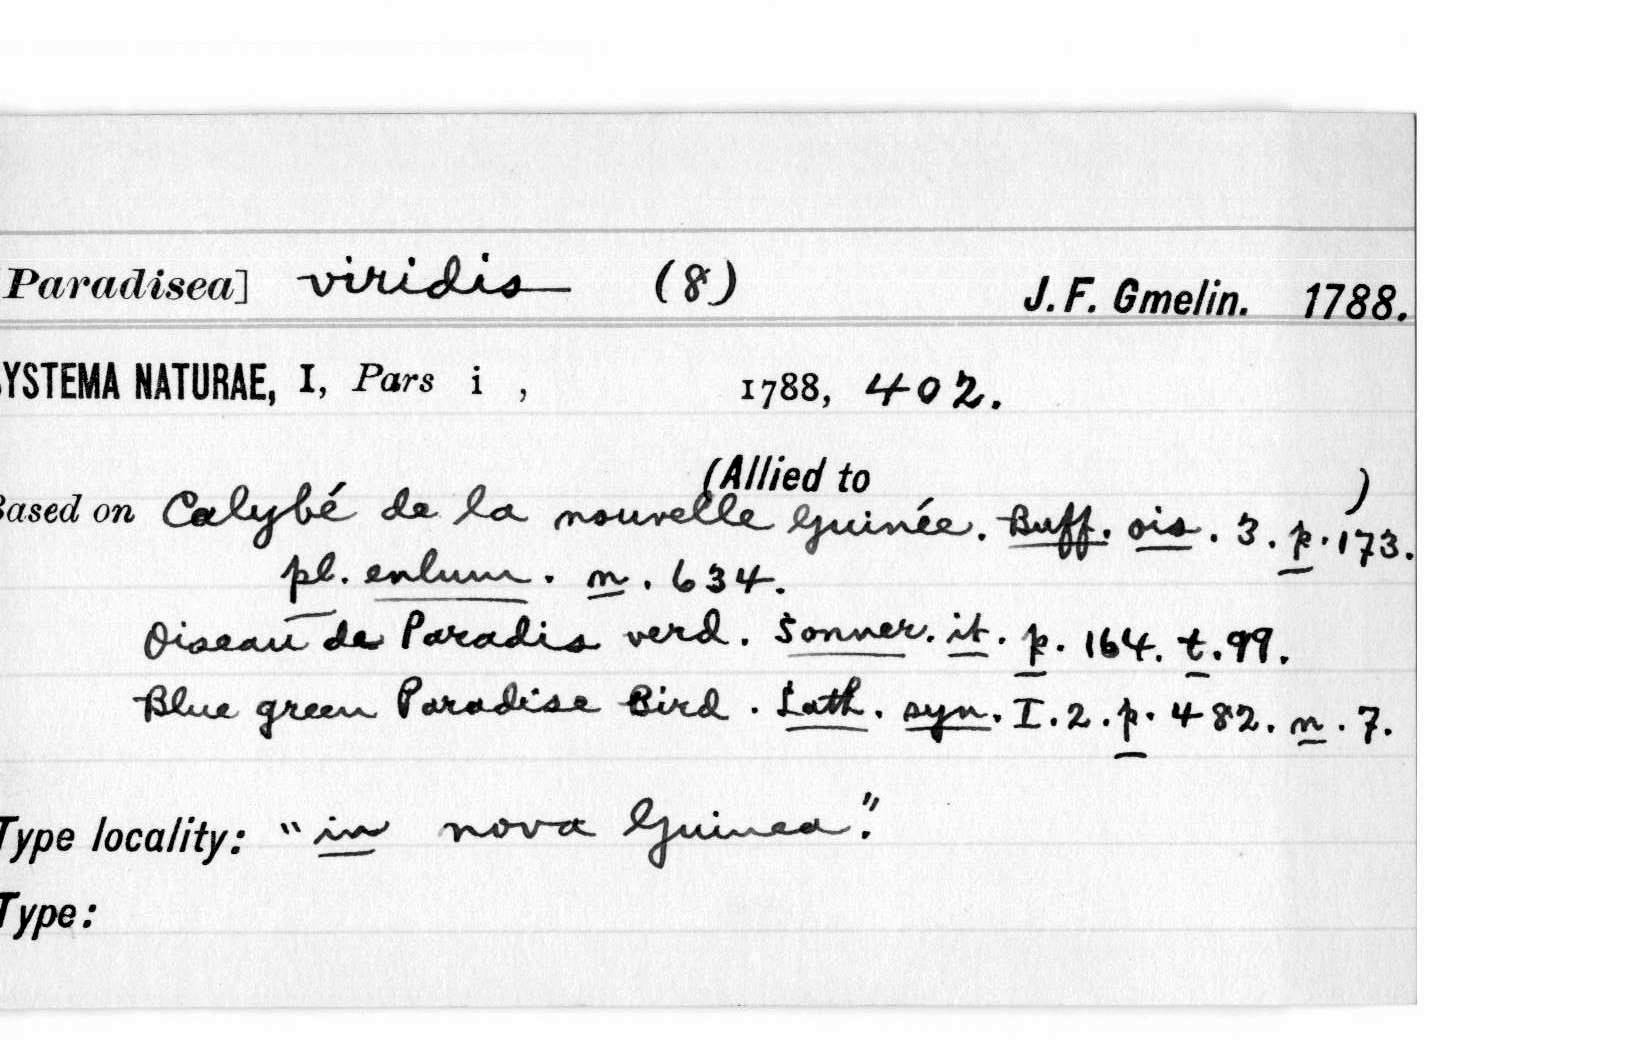 Paradisea] viridis (8) J. F. Gmelin. 1788.
YSTEMA NATURAE, I, Pars i , 1788, 402.
(Allied to )
Based on Calybé de la nouvelle Guinée. Buff. ois. 3. p. 173.
pl. enlum. n. 634.
Oiseau de Paradis verd. Sonner. it. p. 164. t. 99.
Blue green Paradise Bird. Lath. syn. I. 2. p. 482. n. 7.
Type locality: "in nova Guinea".
Type: